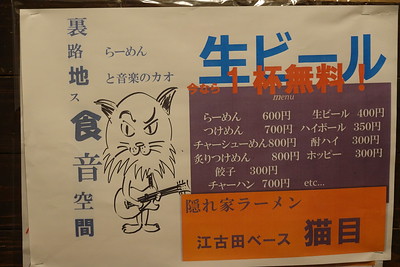 裏路地ス食音空間
らーめん
と音楽のカオ
生ビール
今なら1杯無料！
menu
らーめん 600円 生ビール 400円
つけめん 700円 ハイボール 350円
チャーシューめん800円 酎ハイ 300円
炙りつけめん 800円 ホッピー 300円
餃子 300円
チャーハン 700円 etc...
隠れ家ラーメン
江古田ベース 猫目